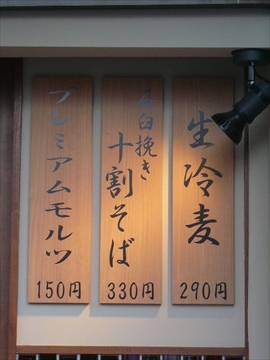 生冷麦
290円
石臼挽き
十割そば
330円
プレミアムモルツ
150円